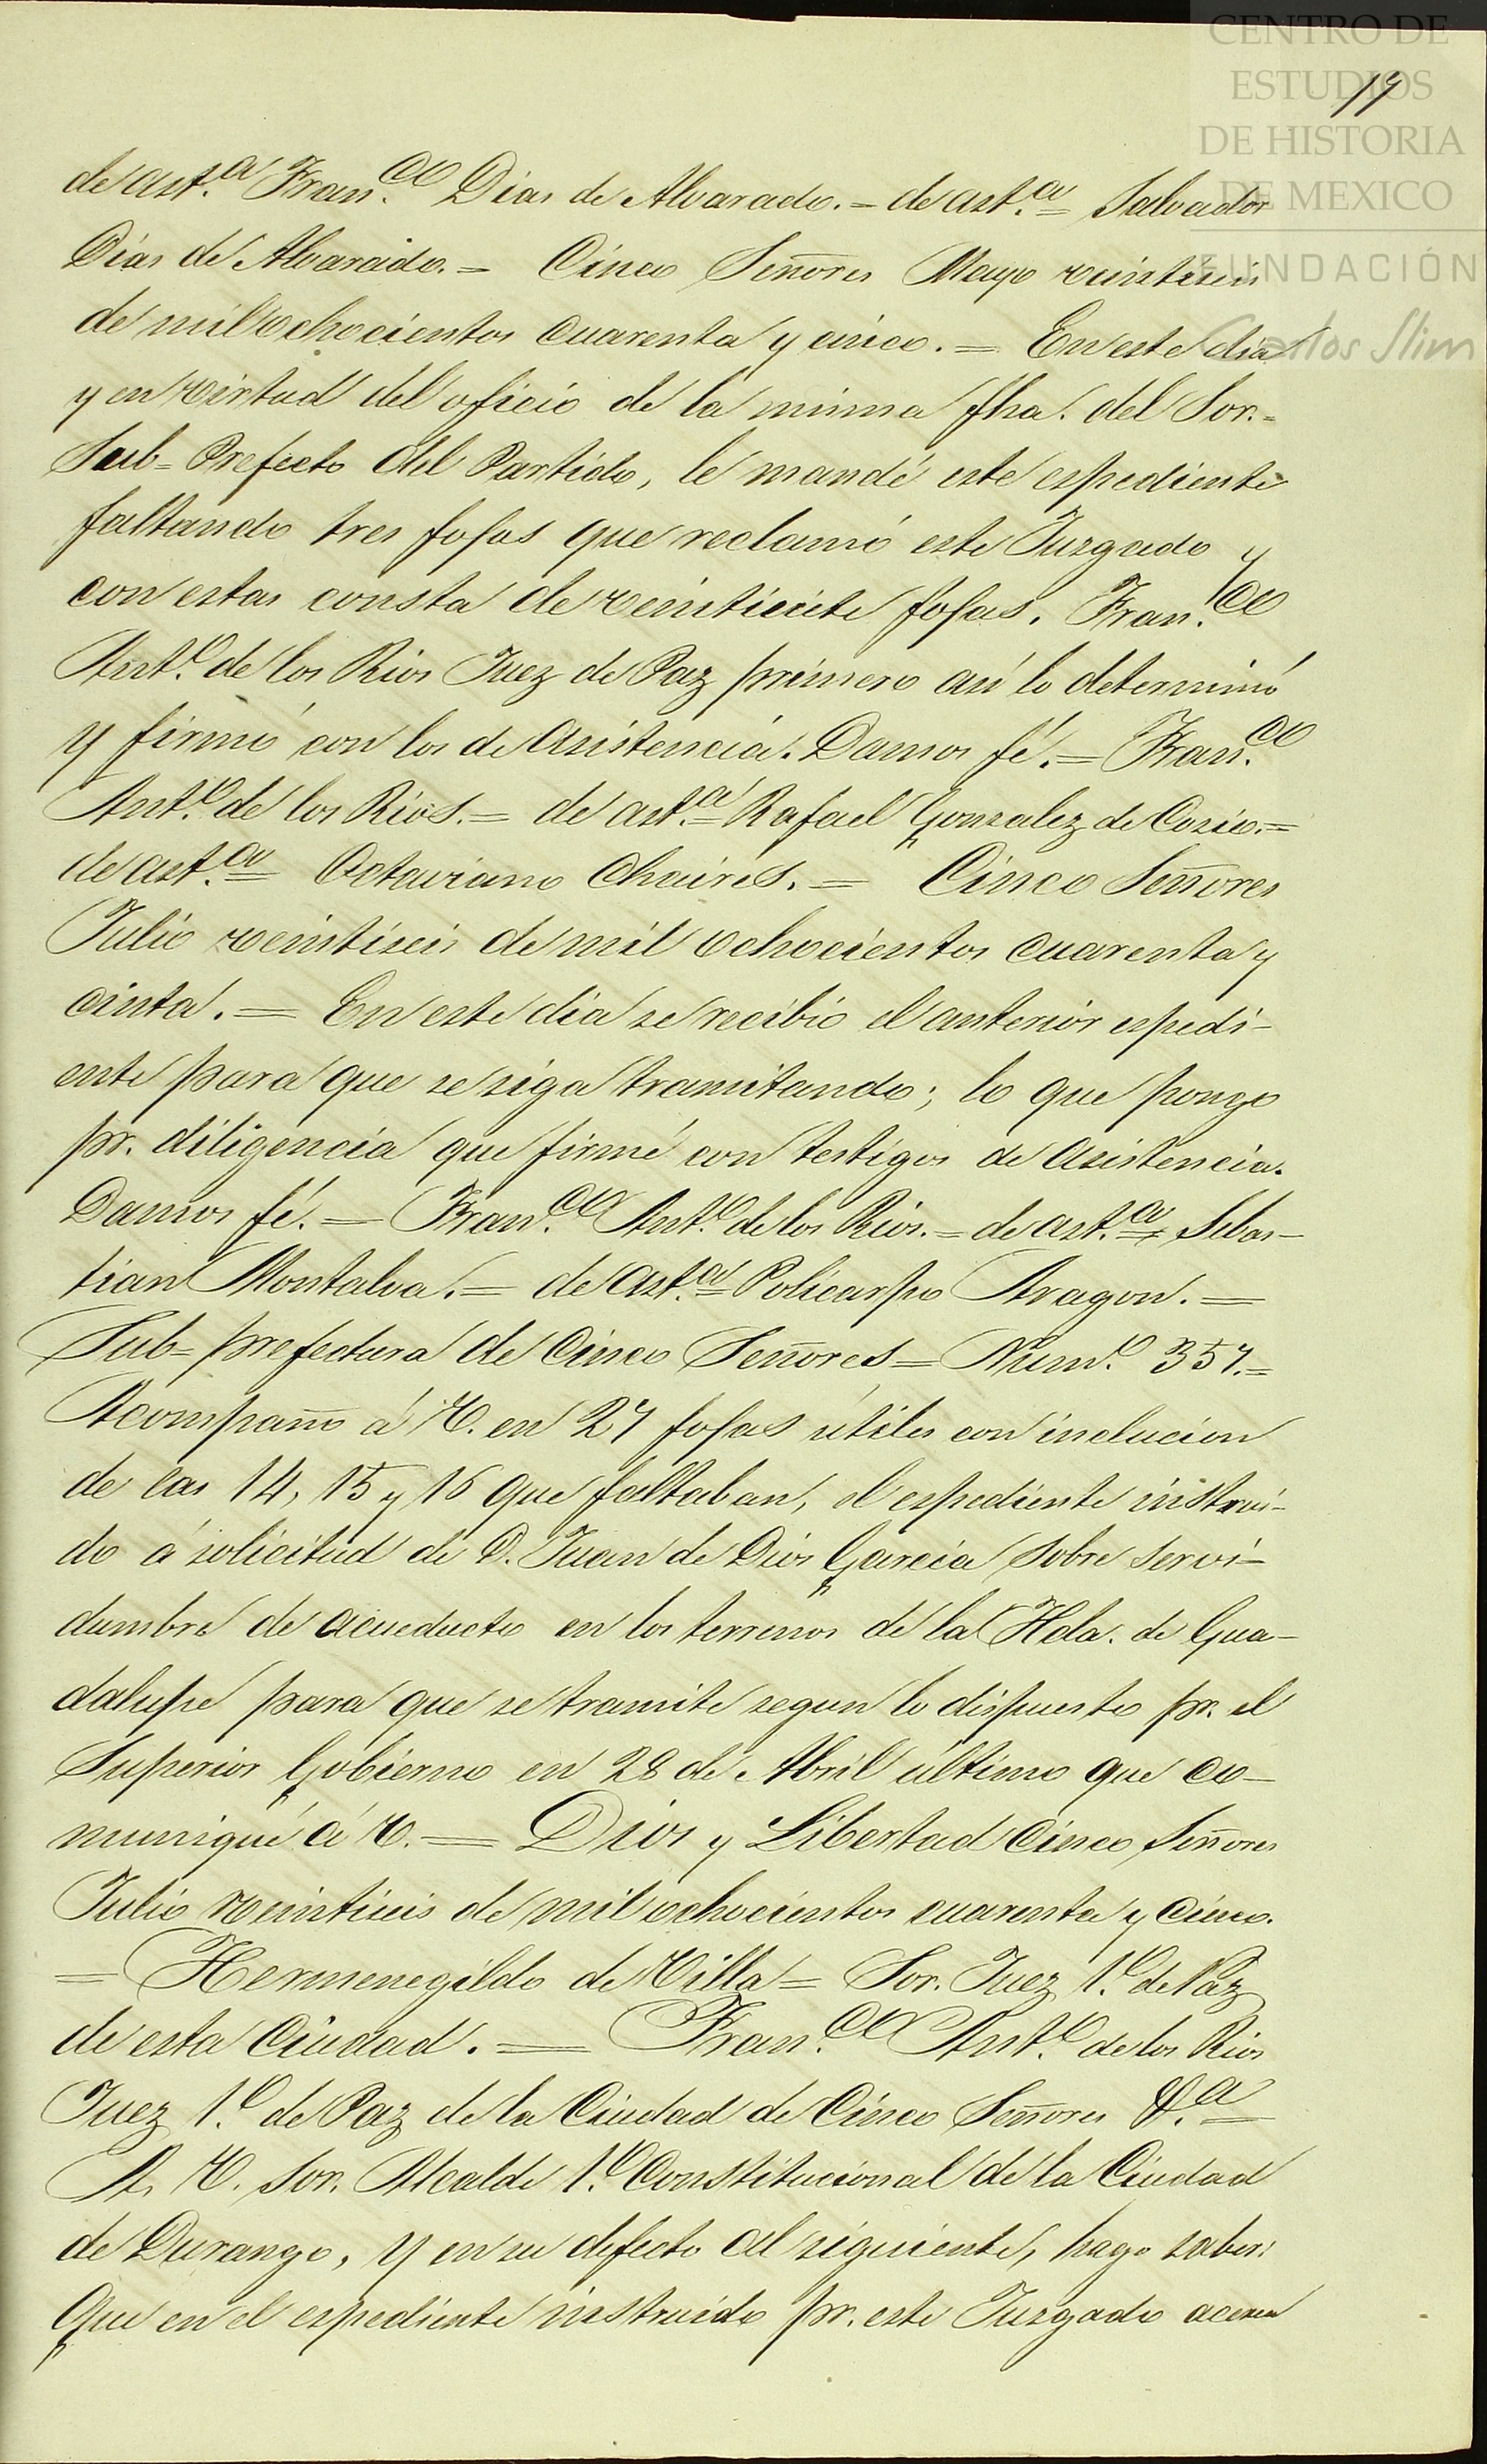 CENTRO DE
ESTUDIOS
DE HISTORIA
DE MEXICO
FUNDACIÓN
Carlos Slim
19
de ast.ª Fran.co Dias de Alvarado. = de ast.ª Salvador
Dias de Alvarado. = Cinco Señores Mayo veintiseis
de mil ochocientos cuarenta y cinco. = En este dia
y en virtud del oficio de la misma fha. del Sor.=
Sub=Prefecto del Partido, le mandé este espediente
faltando tres fojas que reclamó este Juzgado y
con estas consta de veintisiete fojas. Fran.co
Ant.o de los Rios Juez de Paz primero así lo determinó
y firmó con los de asistencia. Damos fé. = Fran.co
Ant.o de los Rios. = de ast.ª Rafael Gonzalez de Cosio. =
de ast.ª Octaviano Chaires. = Cinco Señores
Julio veintiseis de mil ochocientos cuarenta y
cinta. = En este dia se recibió el anterior espedi-
ente para que se siga tramitando; lo que pongo
pr. diligencia que firmé con testigos de asistencia.
Damos fé. = Fran.co Ant.o de los Rios. = de ast.ª Sebas-
tian Montalva. = de ast.ª Policarpo Aragon. =
Sub=prefectura de Cinco Señores = Num.o 357. =
Acompaño á V. en 27 fojas útiles con inclucion
de las 14, 15 y 16 que faltaban, el espediente instrui-
do á solicitud de D. Juan de Dios Garcia sobre servi-
dumbre de acueducto en los terrenos de la Hda. de Gua-
dalupe para que se tramite segun lo dispuesto pr. el
Superior Gobierno en 28 de Abril último que co-
muniqué á V. = Dios y Libertad Cinco Señores
Julio veintiseis de mil ochocientos cuarenta y cinco.
= Hermenegildo de Villa = Sor. Juez 1.o de Paz
de esta Ciudad. = Fran.co Ant.o de los Rios
Juez 1.o de Paz de la Ciudad de Cinco Señores &.ª
A. V. Sor. Alcalde 1.o Constitucional de la Ciudad
de Durango, y en su defecto al siguiente, hago saber:
Que en el espediente instruido pr. este Juzgado acerca